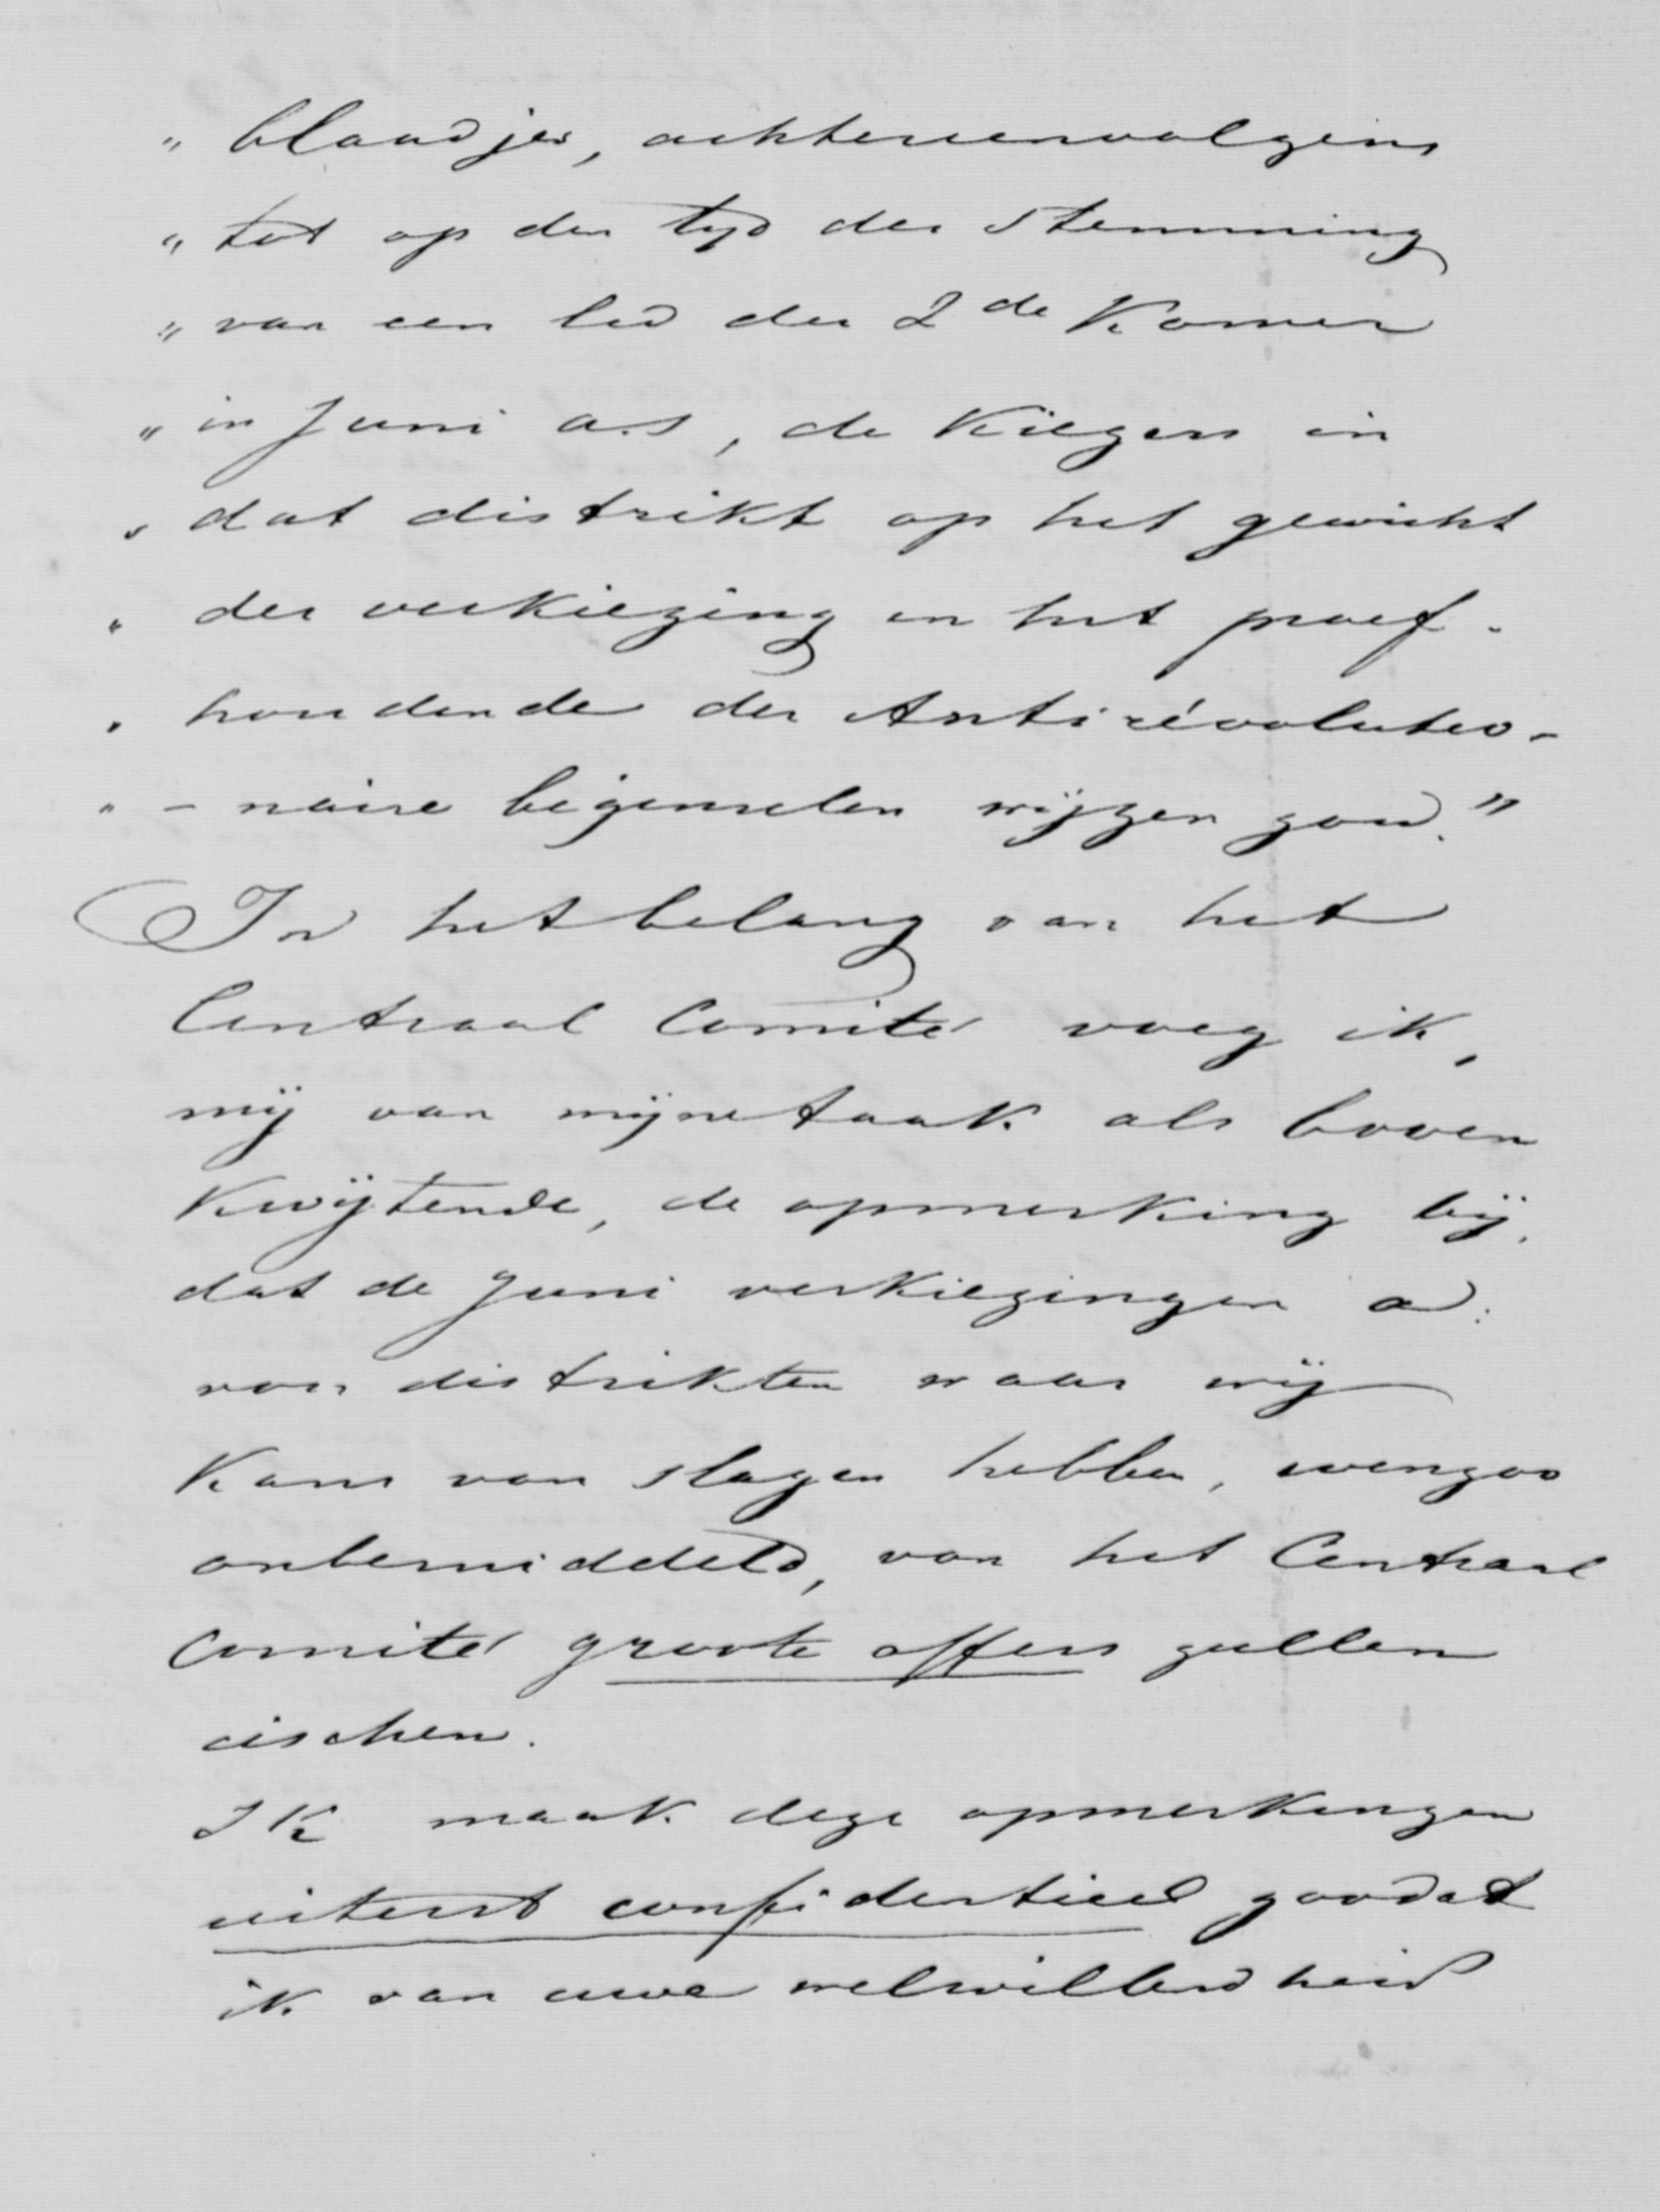 „ blaadjes, achtereenvolgens
„ tot op den tyd der stemming
„ van een lid der 2de Kamer
„ in Juni a.s, de Kiezers in
„ dat distrikt op het gewicht
„ der verkiezing en het proef-
„ houdende der Antirévolutio-
„ - naire beginselen wijzen zou."
In het belang van het
Centraal Comité voeg ik,
mij van mijne taak als boven
Kwijtende, de opmerking bij,
dat de Juni verkiezingen
voor distrikten waar wij
Kans van slagen hebben, evenzoo
onbemiddeld, van het Centraal
Comité groote offers zullen
eischen.
IK maak deze opmerkingen
uiterst confidentieel zoodat
ik van uwe welwillendheid